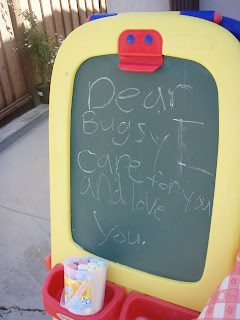 Dear
Bugsy I
care for you
and love
you.